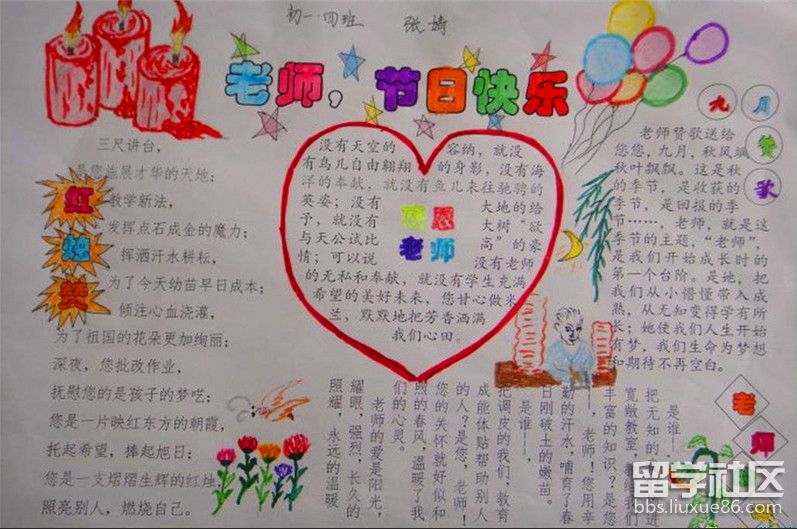 初一·四班 张婧
老师，节日快乐
九月赞歌
红烛赞
三尺讲台，
是您施展才华的天地；
教学新法，
发挥点石成金的魔力；
挥洒汗水耕耘，
为了今天幼苗早日成本；
倾注心血浇灌，
为了祖国的花朵更加绚丽；
深夜，您批改作业，
抚慰您的是孩子的梦呓；
您是一片映红东方的朝霞，
托起希望，捧起旭日；
您是一支熠熠生辉的红烛，
照亮别人，燃烧自己。
感恩
老师
没有天空的容纳，就没
有鸟儿自由翱翔的身影，没有海
洋的奉献，就没有鱼儿来往驰骋的
英姿；没有大地的给
予，就没有大树“欲
与天公试比高”的豪
情；可以说没有老师
的无私和奉献，就没有学生充满
希望的美好未来，您甘心做米
兰，默默地把芳香洒满
我们心田。
老师赞歌送给
您您，九月，秋风飒
秋叶飘飘。这是秋
的季节，是收获的
季节，是回报的季
节……，老师，就是这
季节的主题，“老师”，
是我们开始成长时的
第一个台阶。是她，把
我们从小懵懂带入成
熟，从无知变得学有所
长；她使我们人生开始
有梦，我们生命为梦想
和期待不再空白。
是谁——
把无知的我们
宽敞教室，教给我们
丰富的知识？是您
——，老师！您用辛
勤的汗水，哺育了春
日刚破土的嫩苗。
是谁——，
把调皮的我们，教育
成能体贴帮助别人
的人？是您，老师！
您的关怀就好似和
煦的春风，温暖了我
们的心灵。
老师的爱是阳光，
耀眼，强烈，长久的
照耀，永远的温暖
老师
留学社区
bbs.liuxue86.com